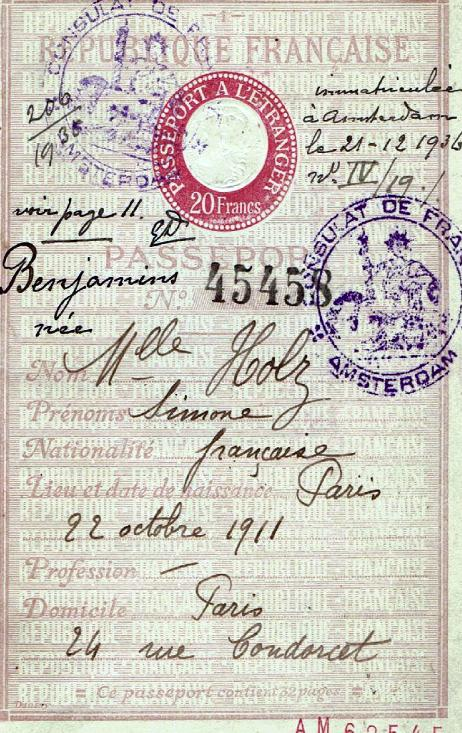 — 1 —
RÉPUBLIQUE FRANÇAISE
CONSULAT DE
AMSTERDAM
206
1936
PASSEPORT A L'ETRANGER
20 Francs
immatriculée
à Amsterdam
le 21-12 1936
nº IV/19.
voir page 11.
PASSEPORT
Benjamins
Nº 45458
née
CONSULAT DE FRAN
AMSTERDAM
Nom Mlle Holz
Prénoms Simone
Nationalité française
Lieu et date de naissance Paris
22 octobre 1911
Profession —
Domicile Paris
24 rue Condorcet
= Ce passeport contient 32 pages =
AM 62545